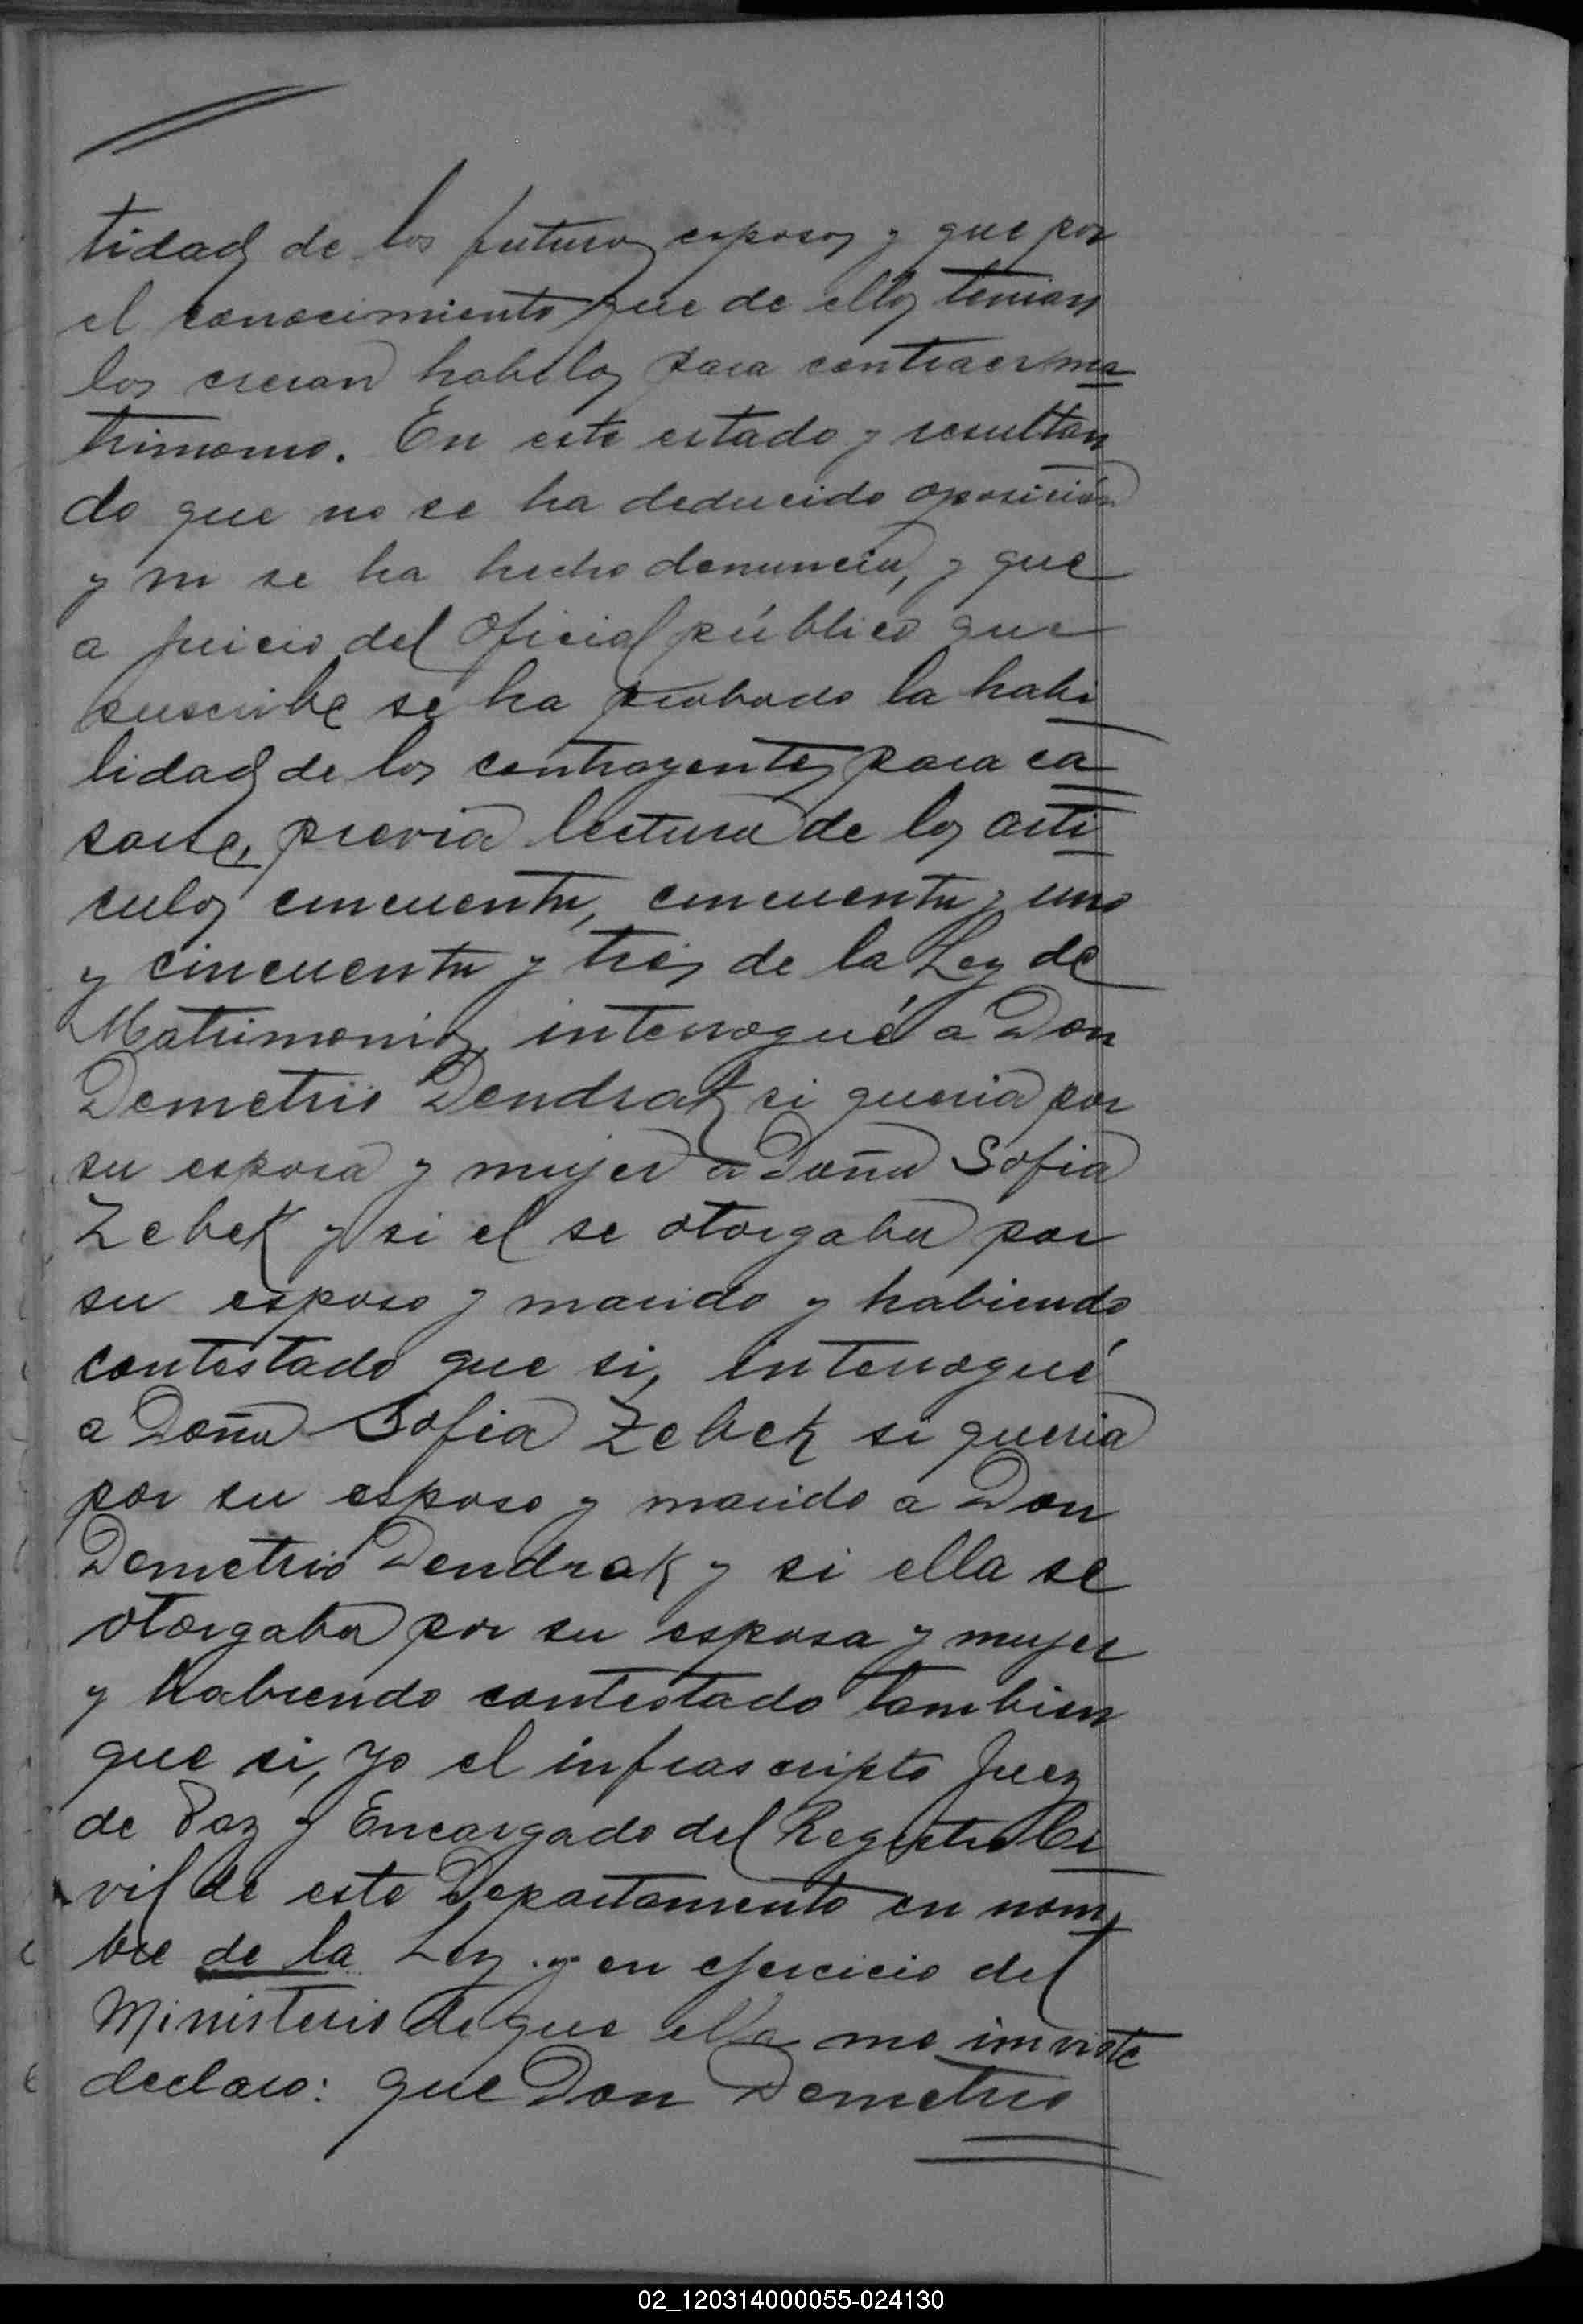 tidad de los futuros esposos y que por
el conocimiento que de ellos tenian
los creian habiles para contraer ma
trimonio. En este estado y resultan
do que no se ha deducido oposición
y ni se ha hecho denuncia, y que
a juicio del Oficial público que
suscribe se ha probado la habi
lidad de los contrayentes para ca
sarse, previa lectura de los arti
culos cincuenta, cincuenta y uno
y cincuenta y tres de la Ley de
Matrimonio, interrogué a Don
Demetrio Dendrak si queria por
su esposa y mujer a Doña Sofia
Zebek y si el se otorgaba por
su esposo y marido y habiendo
contestado que si, interrogué
a Doña Sofia Zebek si queria
por su esposo y marido a Don
Demetrio Dendrak y si ella se
otorgaba por su esposa y mujer
y habiendo contestado tambien
que si, yo el infrascripto Juez
de Paz y Encargado del Registro Ci
vil de este Departamento en nom
bre de la Ley y en ejercicio del
Ministerio de que ella me inviste
declaro: que Don Demetrio
02_120314000055-024130